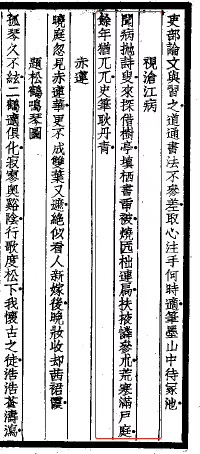 吏部論文與習之道通書法不參差取心注手何時適筆墨山中待冢池
視滄江病
聞病拋詩叟來探借樹亭墳棲書電被燒远拙連扁扶掖憐參朮荒寒滿戶庭
餘年猶兀兀史筆耿丹青
赤蓮
曉庭忽見赤蓮華更不成雙葉又遮絕似看人新嫁後晚妝收却茜裙霞
題松鶴鳴琴圖
孤琴久不絃二鶴適俱化寂寥奧谿陰行歌度松下我懷古之徒浩浩蒼濤瀉